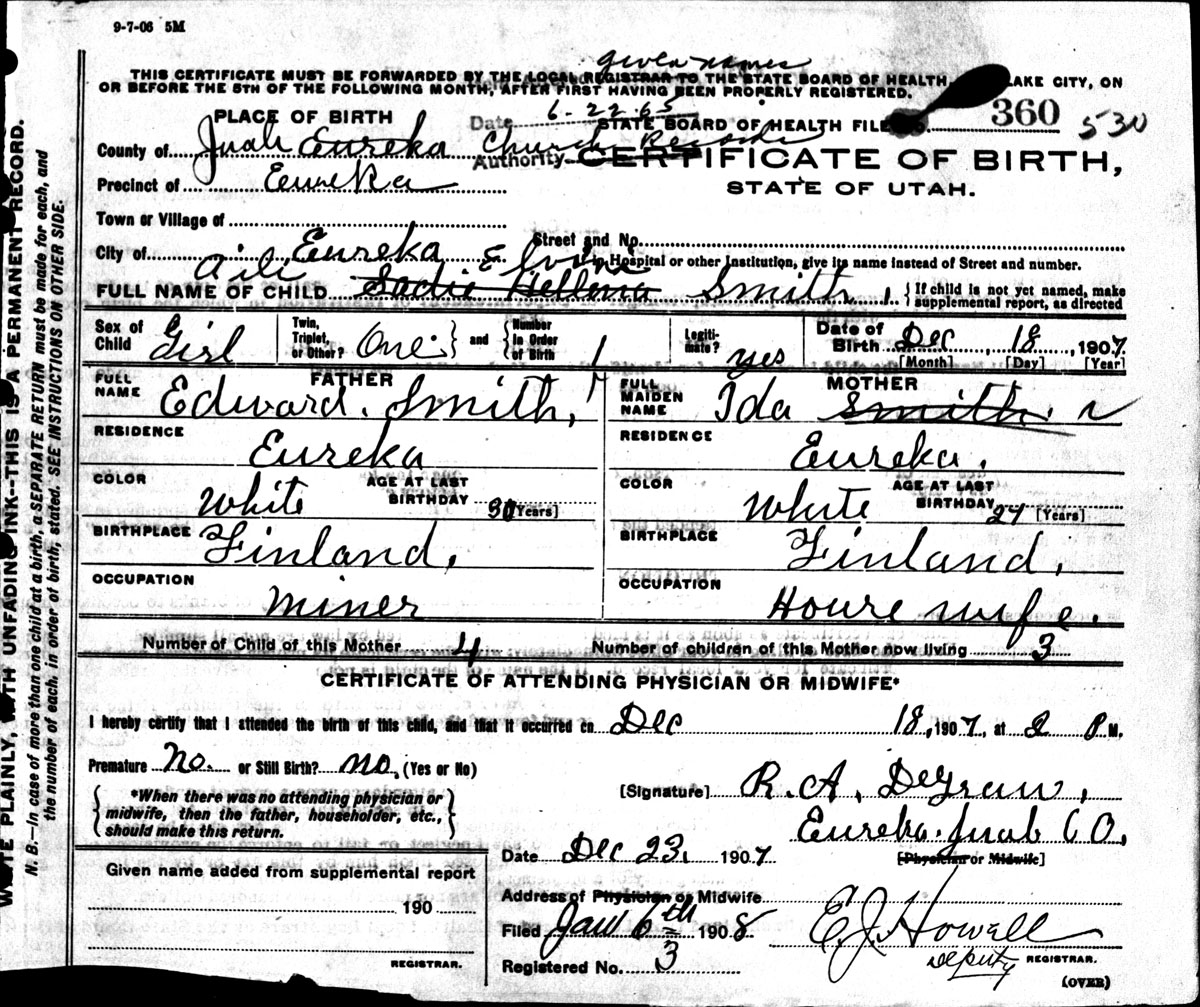 9-7-06 5M
given names
THIS CERTIFICATE MUST BE FORWARDED BY THE LOCAL REGISTRAR TO THE STATE BOARD OF HEALTH, LAKE CITY, ON
OR BEFORE THE 5TH OF THE FOLLOWING MONTH, AFTER FIRST HAVING BEEN PROPERLY REGISTERED.
PLACE OF BIRTH
Date 6-22-65
STATE BOARD OF HEALTH FILE NO. 360 530
County of Juab Eureka
Authority Church Records
CERTIFICATE OF BIRTH,
Precinct of Eureka
STATE OF UTAH.
Town or Village of
City of Eureka Street and No.
in Hospital or other Institution, give its name instead of Street and number.
Aili
FULL NAME OF CHILD Sadie Hellema Smith, {If child is not yet named, make supplemental report, as directed
Sex of Child Girl Twin, Triplet, or Other? One } and { Number in Order of Birth 1 Legiti-mate? yes Date of Birth Dec, 18, 1907.
[Month] [Day] [Year]
FATHER
FULL NAME Edward. Smith,
MOTHER
FULL MAIDEN NAME Ida Smith
RESIDENCE Eureka
RESIDENCE Eureka.
COLOR White AGE AT LAST BIRTHDAY 30 [Years]
COLOR White AGE AT LAST BIRTHDAY 27 [Years]
BIRTHPLACE Finland,
BIRTHPLACE Finland,
OCCUPATION miner
OCCUPATION House wife.
Number of Child of this Mother 4 Number of children of this Mother now living 3
CERTIFICATE OF ATTENDING PHYSICIAN OR MIDWIFE*
I hereby certify that I attended the birth of this child, and that it occurred on Dec 18, 1907, at 2 P M.
Premature no. or Still Birth? no. (Yes or No)
{ *When there was no attending physician or midwife, then the father, householder, etc., should make this return. }
[Signature] R. A. DeGraw,
Eureka. Juab CO,
Date Dec 23, 1907
[Physician or Midwife]
Given name added from supplemental report
190
REGISTRAR.
Address of Physician or Midwife
Filed Jan 6th 1908 E. J. Howell
Deputy REGISTRAR.
Registered No. 3
(OVER)
WRITE PLAINLY, WITH UNFADING INK--THIS IS A PERMANENT RECORD.
N. B.—In case of more than one child at a birth, a SEPARATE RETURN must be made for each, and
the number of each, in order of birth, stated. SEE INSTRUCTIONS ON OTHER SIDE.